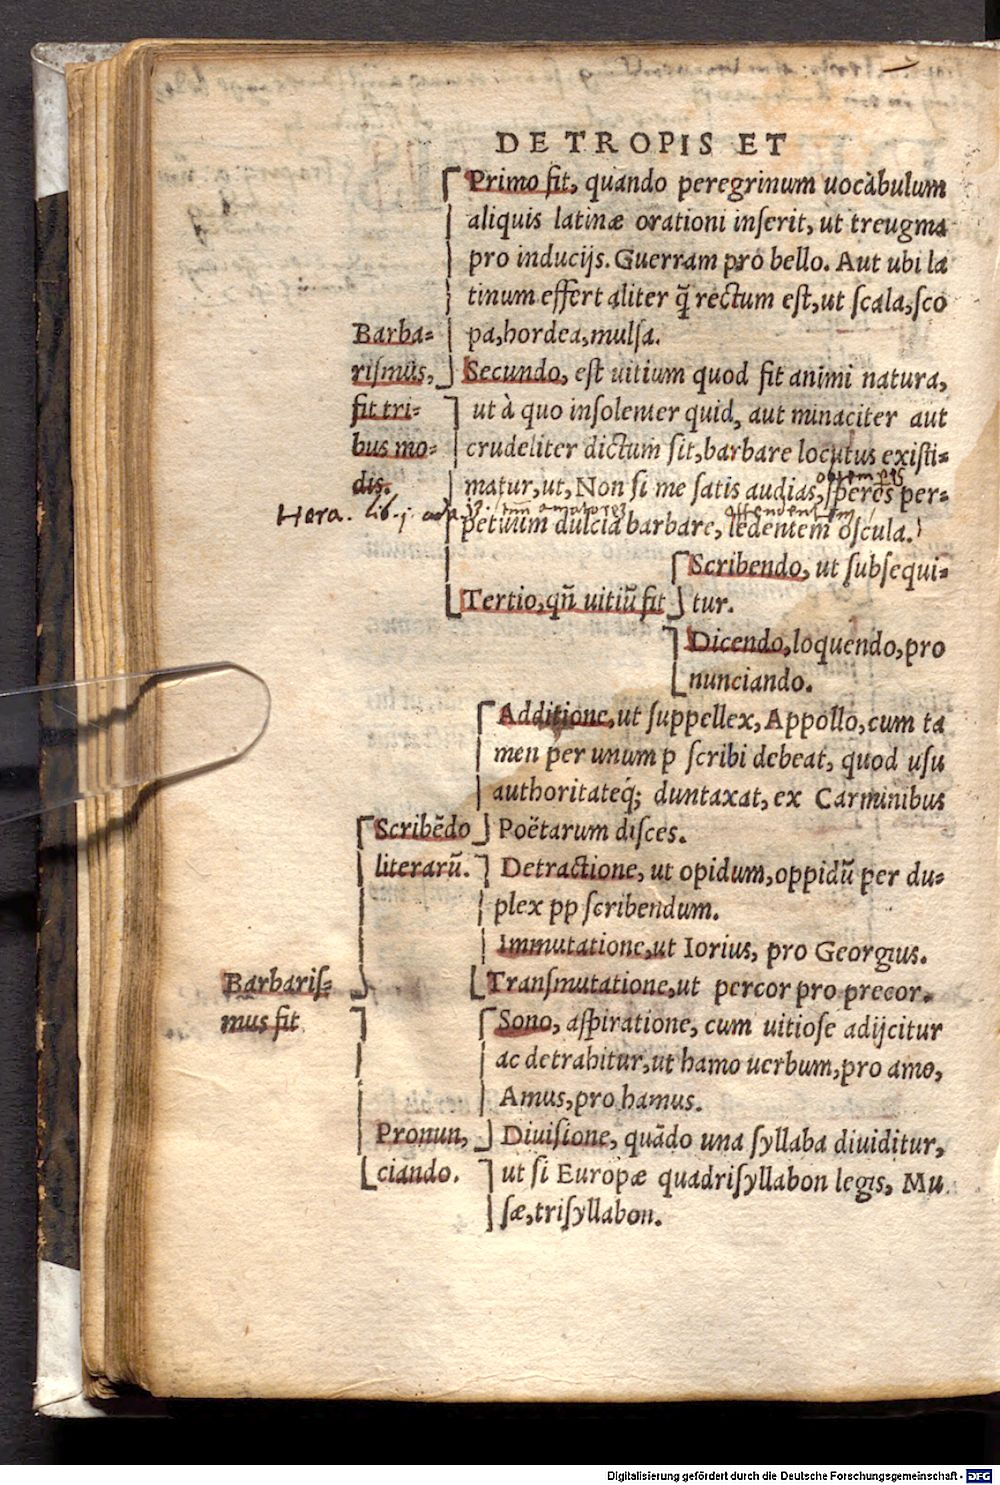 DE TROPIS ET
Primo fit, quando peregrinum uocàbulum
aliquis latinæ orationi inserit, ut treugma
pro inducijs. Guerram pro bello. Aut ubi la
tinum effert aliter q̃ rectum est, ut scala, sco
pa, hordea, mulsa.
Barba=
rismus,
fit tri=
bus mo=
dis.
Secundo, est uitium quod fit animi natura,
ut à quo insolenter quid, aut minaciter aut
crudeliter dictum sit, barbare locutus existi=
matur, ut, Non si me satis audias, speres per=
petuum dulcia barbare, ledentem oscula.
Hora. lib. j. oda. 13.
Tertio, qñ uitiũ fit
Scribendo, ut subsequi=
tur.
Dicendo, loquendo, pro
nunciando.
Barbaris=
mus fit
Scribẽdo
literarũ.
Additione, ut suppellex, Appollo, cum ta
men per unum p scribi debeat, quod usu
authoritateq́; duntaxat, ex Carminibus
Poëtarum disces.
Detractione, ut opidum, oppidũ per du=
plex pp scribendum.
Immutatione, ut Iorius, pro Georgius.
Transmutatione, ut percor pro precor.
Pronun,
ciando.
Sono, aspiratione, cum uitiose adijcitur
ac detrahitur, ut hamo uerbum, pro amo,
Amus, pro hamus.
Diuisione, quãdo una syllaba diuiditur,
ut si Europæ quadrisyllabon legis, Mu
sæ, trisyllabon.
Digitalisierung gefördert durch die Deutsche Forschungsgemeinschaft - DFG